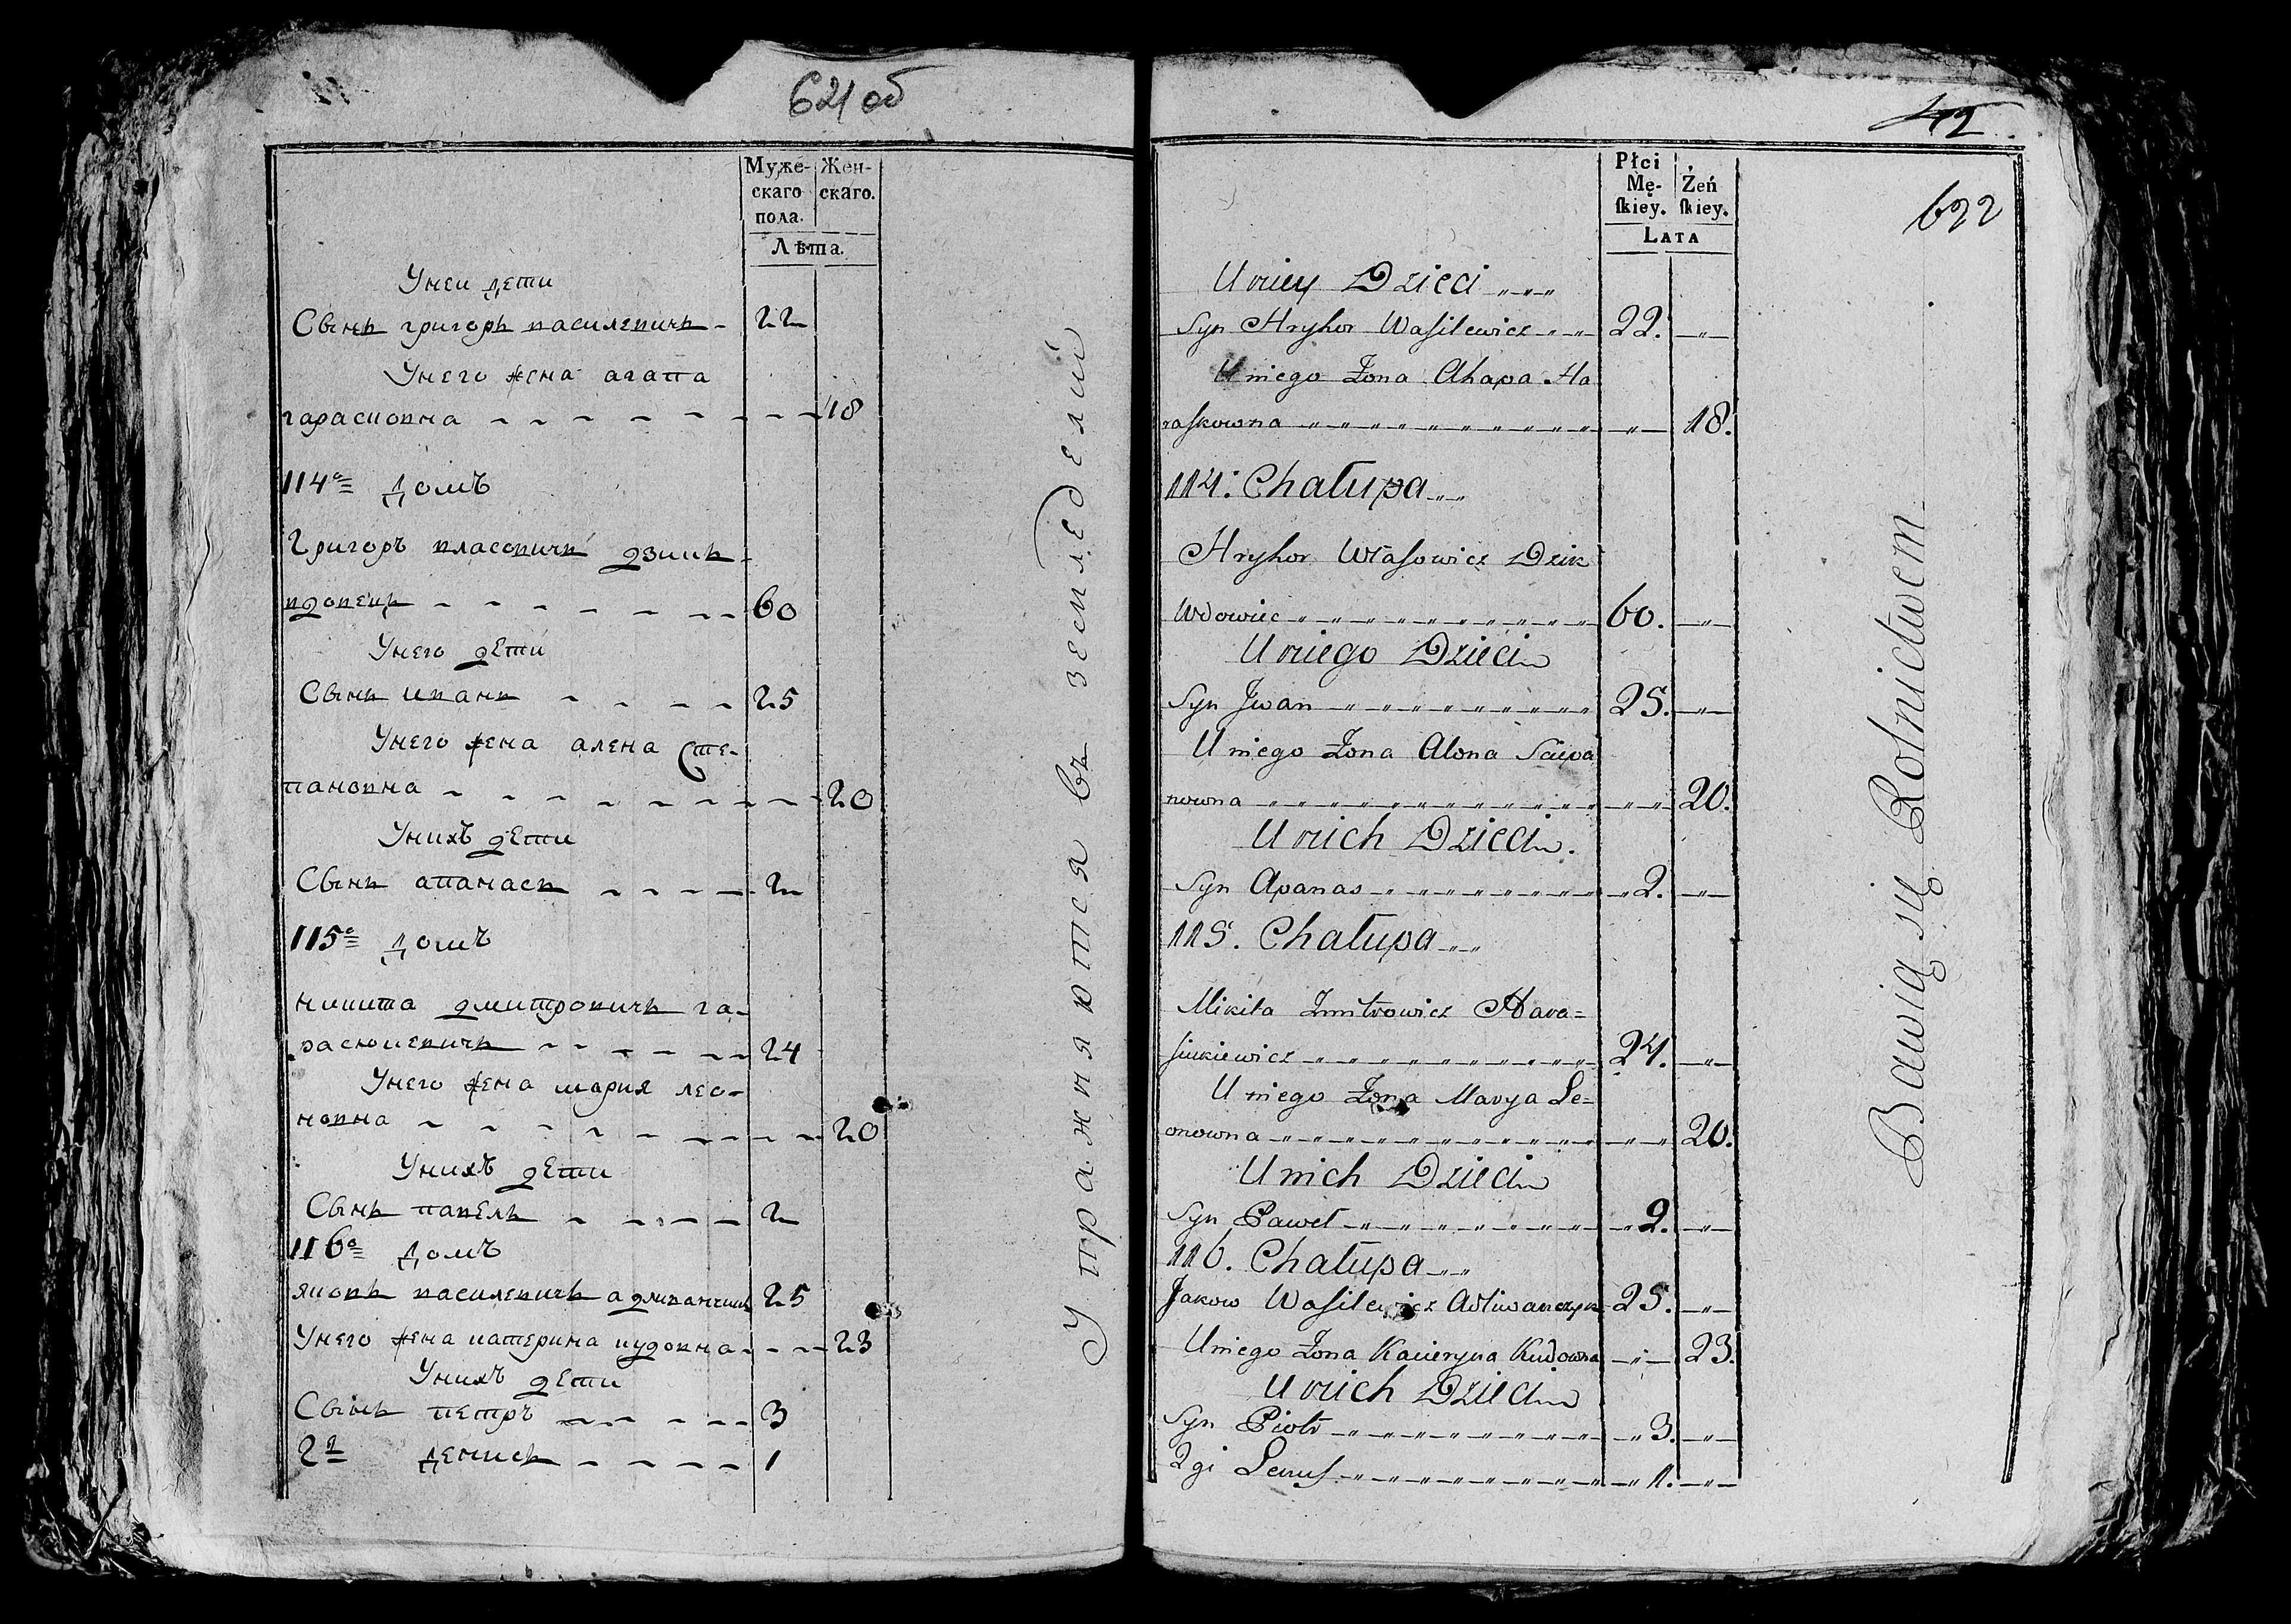 621 об
Муже-
скаго
пола.
Жен-
скаго.
Лѣта.
Унеи дети
Сынъ григоръ василевичъ 22
Унего жена агапа
гарасковна 18
114й домъ
Григоръ власовичъ дзикъ
вдовецъ 60
Унего дети
Сынъ иванъ 25
Унего жена алена Сте-
пановна 20
Унихъ дети
Сынъ апанасъ 2
115й домъ
никита дмитровичъ га-
расюкевичъ 24
Унего жена мария лео-
новна 20
Унихъ дети
Сынъ павелъ 2
116й домъ
яковъ василевичъ адливанчикъ 25
Унего жена катерина кудовна 23
Унихъ дети
Сынъ петръ 3
2й денисъ 1
Упражняются въ земледелии
42
622
Płci
Mę-
ſkiey.
Żeń
ſkiey.
LATA
U niey Dzieci
Syn Hryhor Waſilewicz 22.
U niego Żona Ahapa Ha
raſkowna 18.
114. Chałupa
Hryhor Właſowicz Dzik
Wdowiec 60.
U niego Dzieci
Syn Jwan 25.
U niego Żona Alona Sciepa
nowna 20.
U nich Dzieci
Syn Apanas 2.
115. Chałupa
Mikita Zmitrowicz Hara=
ſiukiewicz 24.
U niego Żona Marya Le=
onowna 20.
U nich Dzieci
Syn Paweł 2.
116. Chałupa
Jakow Waſilewicz Adliwanczyk 25.
U niego Żona Kacieryna Kudowna 23.
U nich Dzieci
Syn Piotr 3.
2gi 1.
Bawią się Rolnictwem